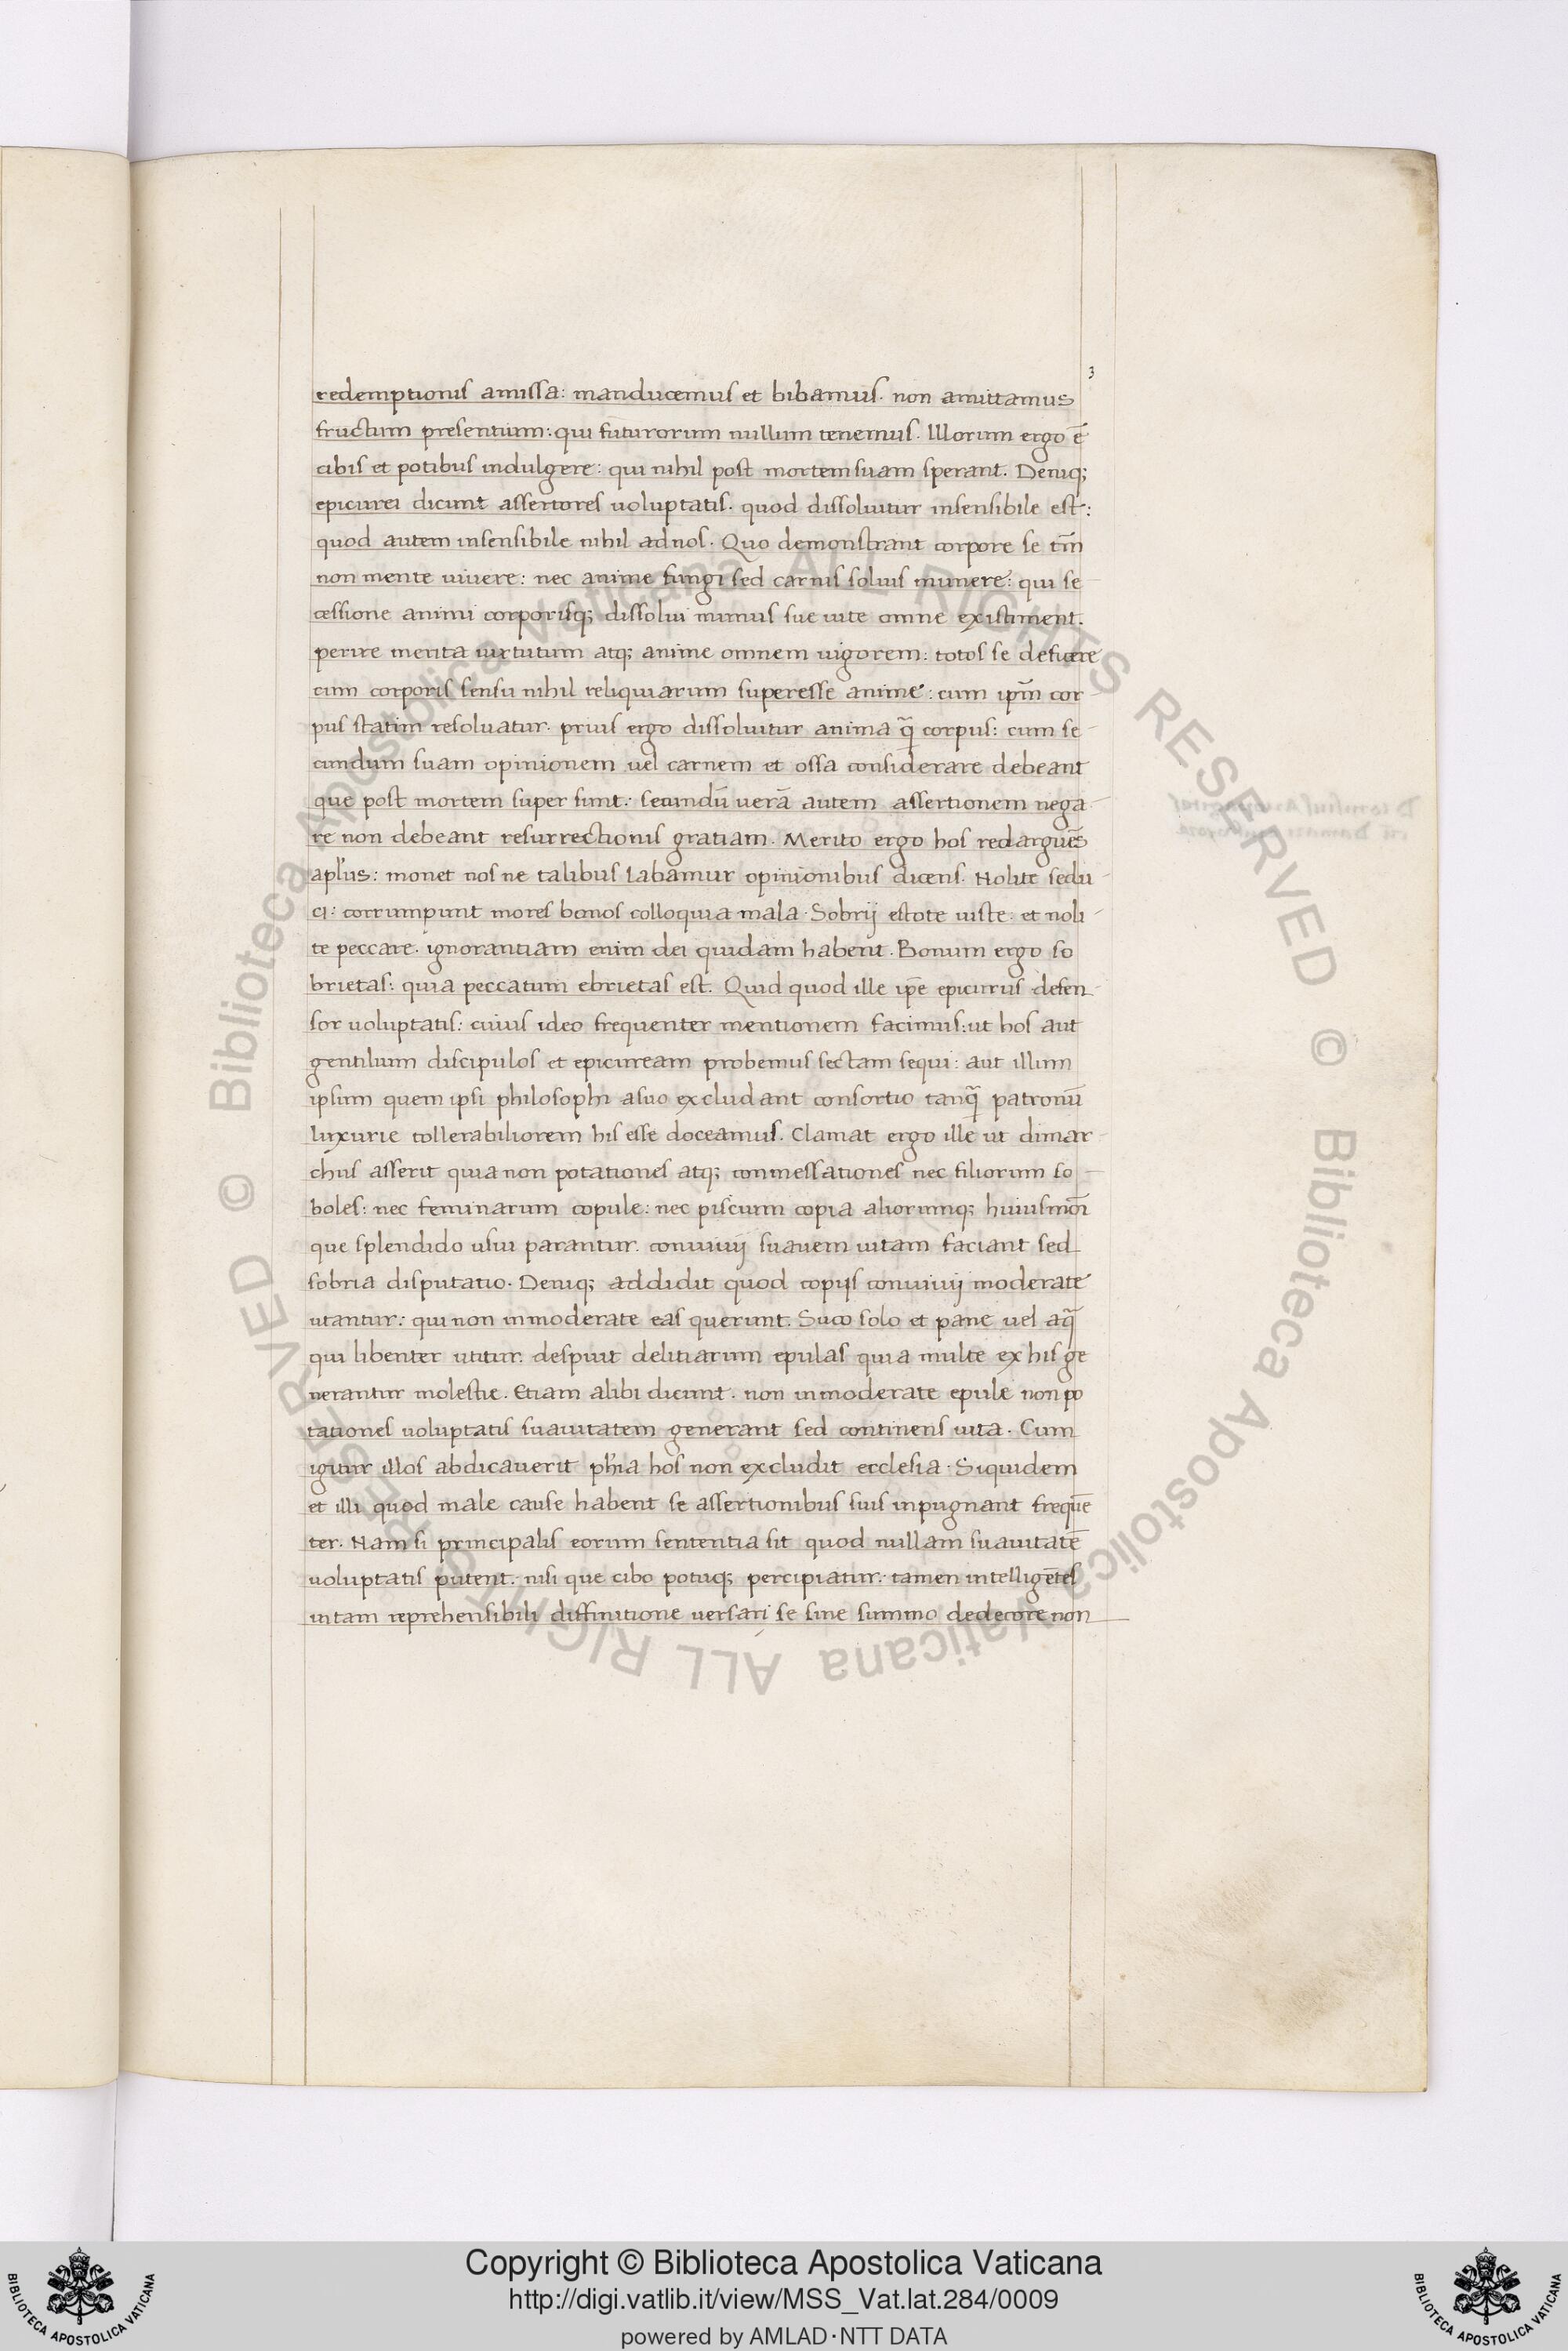 3
redemptionis amissa: manducemus et bibamus. non amittamus
fructum presentium: qui futurorum nullum tenemus. Illorum ergo ē
cibis et potibus indulgere: qui nihil post mortem suam sperant. Deniq;
epicurei dicunt assertores uoluptatis. quod dissoluitur insensibile est:
quod autem insensibile nihil ad nos. Quo demonstrant corpore se tm̄
non mente uiuere: nec anime fungi sed carnis solius munere: qui se
cessione animi corporisq; dissolui munus sue uite omne existiment.
perire merita uirtutum atq; anime omnem uigorem: totos se deficere
cum corporis sensu nihil reliquiarum superesse anime: cum ipm̄ cor
pus statim resoluatur. prius ergo dissoluitur anima q̄ corpus: cum se
cundum suam opinionem uel carnem et ossa considerare debeant
que post mortem super sunt: secundū uerā autem assertionem nega
re non debeant resurrectionis gratiam. Merito ergo hos redarguēs
apl'us: monet nos ne talibus labamur opinionibus dicens. Nolite sedu
ci: corrumpunt mores bonos colloquia mala. Sobrij estote iuste: et noli
te peccare. ignorantiam enim dei quidam habent. Bonum ergo so
brietas: quia peccatum ebrietas est. Quid quod ille ip̄e epicurus defen
sor uoluptatis: cuius ideo frequenter mentionem facimus: ut hos aut
gentilium discipulos et epicuream probemus sectam sequi: aut illum
ipsum quem ipsi philosophi a suo excludant consortio tanq̄ patronū
luxurie tollerabiliorem his esse doceamus. Clamat ergo ille ut dimar
chus asserit quia non potationes atq; conmessationes nec filiorum so
boles: nec feminarum copule: nec piscium copia aliorumq; huiusmōi
que splendido usui parantur. conuiuij suauem uitam faciant sed
sobria disputatio. Deniq; addidit quod copijs conuiuij moderate
utantur: qui non inmoderate eas querunt. Suco solo et pane uel aq̄
qui libenter utitur. despuit delitiarum epulas quia multe ex his ge
nerantur molestie. Etiam alibi dicunt. non inmoderate epule non po
tationes uoluptatis suauitatem generant sed continens uita. Cum
igitur illos abdicauerit ph'ia hos non excludit ecclesia. Siquidem
et illi quod male cause habent se assertionibus suis inpugnant frequē
ter. Nam si principalis eorum sententia sit quod nullam suauitatē
uoluptatis putent. nisi que cibo potuq; percipiatur: tamen intelligētes
in tam reprehensibili diffinitione uersari se sine summo dedecore non
© Biblioteca Apostolica Vaticana ALL RIGHTS RESERVED
© Biblioteca Apostolica Vaticana ALL RIGHTS RESERVED
Copyright © Biblioteca Apostolica Vaticana
http://digi.vatlib.it/view/MSS_Vat.lat.284/0009
powered by AMLAD·NTT DATA
BIBLIOTECA APOSTOLICA VATICANA
BIBLIOTECA APOSTOLICA VATICANA